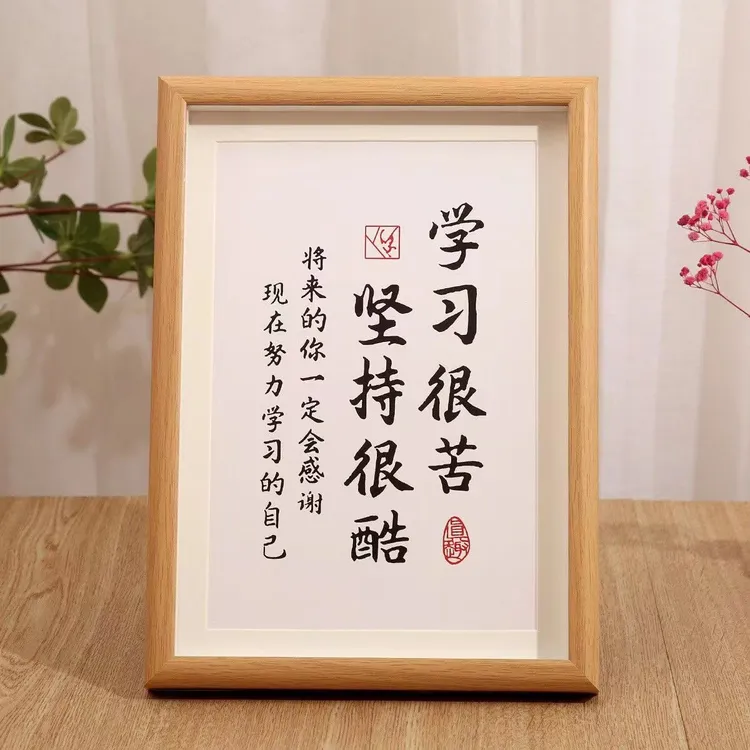 学习很苦
坚持很酷
将来的你一定会感谢
现在努力学习的自己
真趣